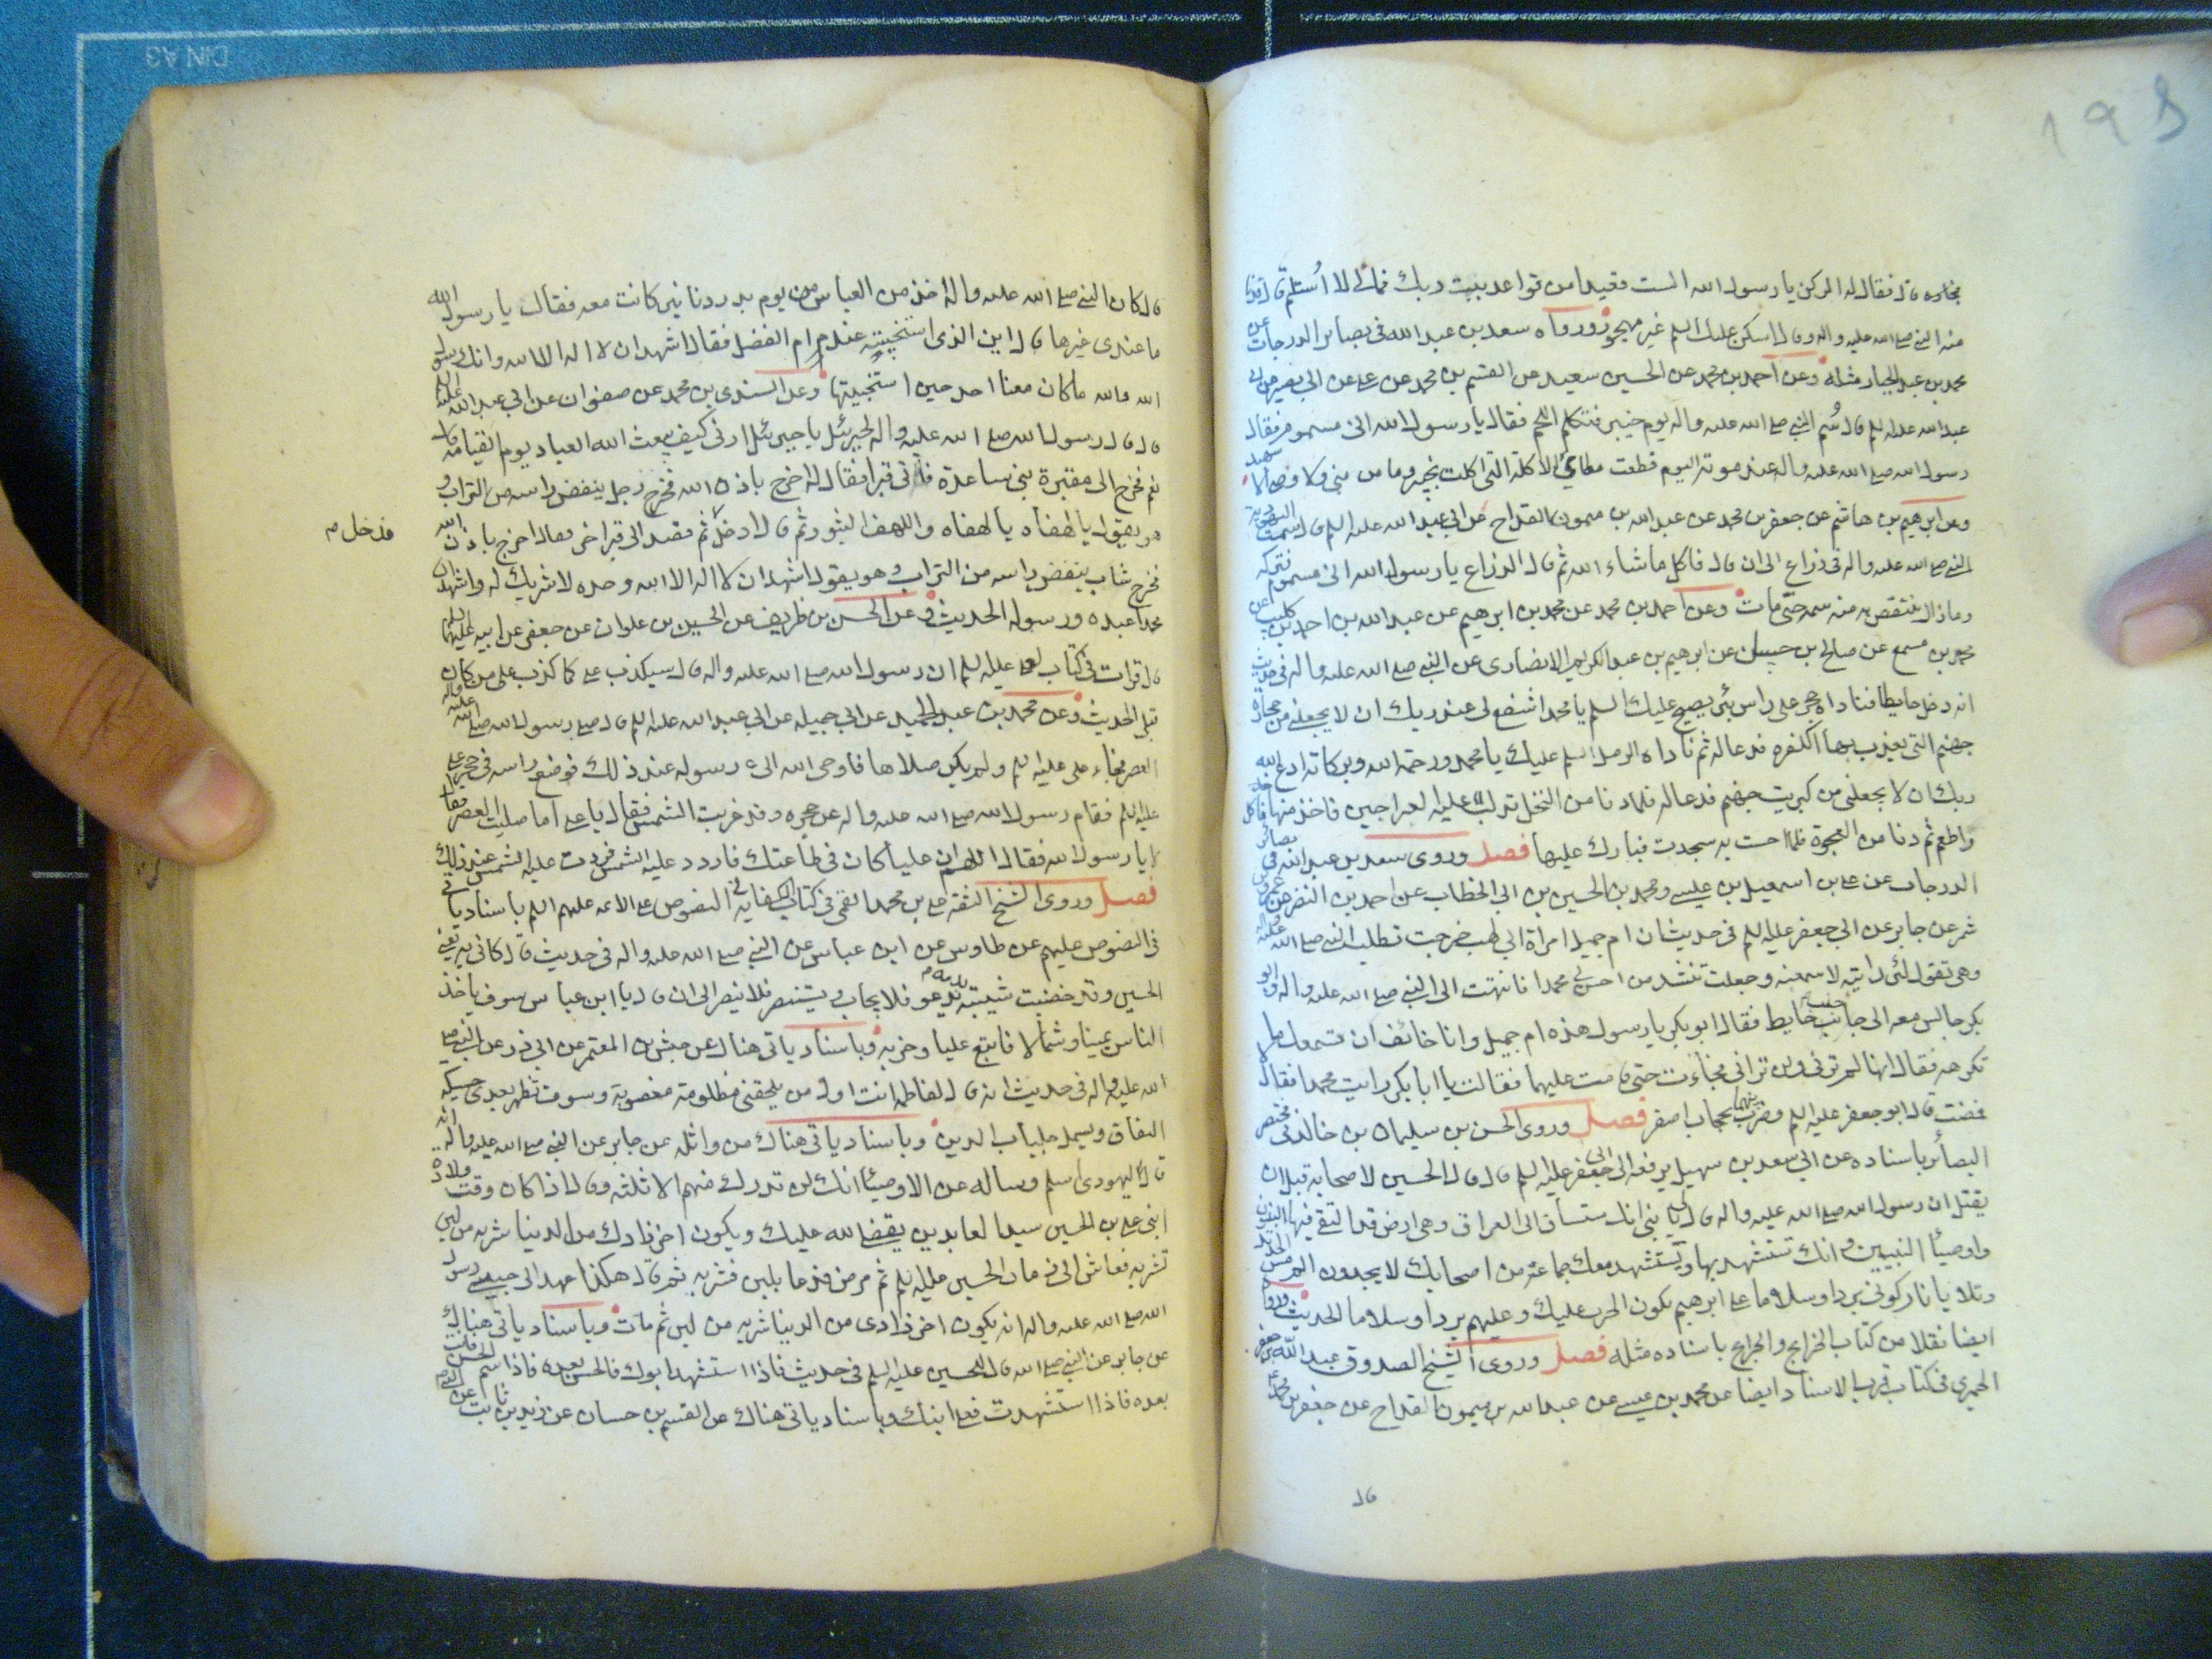 بحاره قال فقال له الركن يا رسول الله الست قعيدا من قواعد بيت ربك فمالي لا أُستلم قال فدنا
منه النبي صلى الله عليه واله وقال اسكن عليك السلم غير مهجور ورواه سعد بن عبد الله في بصائر الدرجات عن
محمد بن عبد الجبار مثله وعن احمد بن محمد عن الحسين سعيد عن القسم بن محمد عن علي عن ابي بصير عن ابي
عبد الله عليه السلم قال سُم النبي صلى الله عليه واله يوم خيبر فتكلم اللحم فقال يا رسول الله اني مسموم فقال
رسول الله صلى الله عليه واله عند موته اليوم قطعت مطاياي الاكلة التي اكلت بخيبر وما من نبي ولا وصي الا شهيد
وعن ابرهيم بن هاشم عن جعفر بن محمد عن عبد الله بن ميمون القداح عن ابي عبد الله عليه السلم قال سمت اليهودية
النبي صلى الله عليه واله في ذراع الى ان قال فاكل ما شاء الله ثم قال الذراع يا رسول الله اني مسموم فتركه
وما زال ينتقض به منه سمه حتى مات وعن احمد بن محمد عن محمد بن ابرهيم عن عبد الله بن احمد بن كليب عن
عمر بن مسمع عن صالح بن عن ابرهيم بن عبد الكريم الانصاري عن النبي صلى الله عليه واله في حديث
انه دخل حايطا فناداه حجر على راس بئر يصيح عليك السلم يا محمد اشفع لي عند ربك ان لا يجعلني من حجارة
جهنم التي يعذب بها الكفره فدعا له ثم ناداه الرمل السلم عليك يا محمد ورحمة الله وبركاته ادع الله
ربك ان لا يجعلني من كبريت جهنم فدعا له فلما دنا من النخل تدلت عليه العراجين فاخذ منها فاكل
واطعم ثم دنا من العجوة فلما احست به سجدت فبارك عليها فصل وروى سعد بن عبد الله في بصائر
الدرجات عن علي بن اسمعيل بن عيسى ومحمد بن الحسين بن ابي الخطاب عن احمد بن النضر عن عمرو بن
شمر عن جابر عن ابي جعفر عليه السلم في حديث ان ام جميل امراة ابي لهب خرجت تطلب النبي صلى الله عليه واله
وهي تقول لئن رايته لاسمعنه وجعلت تنشد من احس لي محمدا فانتهت الى النبي صلى الله عليه واله وابو
بكر جالس معه الى جانب حايط فقال ابو بكر يا رسول هذه ام جميل وانا خائف ان تسمعك ما
تكرهه فقال انها لم ترني ولن تراني فجاءت حتى قامت عليهما فقالت يا ابا بكر رايت محمدا فقال لا
فمضت قال ابو جعفر عليه السلم وضرب بينهما بحجاب اصفر فصل وروى الحسن بن سليمان بن خالد في مختصر
البصائر باسناده عن ابي سعد بن سهيل يرفعه الى ابي جعفر عليه السلم قال قال الحسين لاصحابه قبل ان
يقتل ان رسول الله صلى الله عليه واله قال لي يا بني انك ستساق الى العراق وهي ارض قد التقى فيها النبيون
واوصيأ النبيين وانك تستشهد بها ويستشهد معك جماعة من اصحابك لا يجدون الم مس الحديد
وتلا يا نار كوني بردا وسلاما على ابرهيم يكون الحرب عليك وعليهم بردا وسلاما الحديث ورواه
ايضا نقلا من كتاب الخرايج والجرايح باسناده مثله فصل وروى الشيخ الصدوق عبد الله بن جعفر
الحميري في كتاب قرب الاسناد ايضا عن محمد بن عيسى عن عبد الله بن ميمون القداح عن جعفر بن محمد
قال
قال كان النبي صلى الله عليه واله اخذ من العباس يوم بدر دنانير كانت معه فقال يا رسول الله
ما عندي غيرها قال اين الذي استخبيته عند ام الفضل فقال اشهد ان لا اله الا الله وانك رسول
الله والله ما كان معنا احد حين استخبيتها وعن السندي بن محمد عن صفوان عن ابي عبد الله عليه السلم
قال قال رسول الله صلى الله عليه واله لجبرئيل يا جبرئيل ارني كيف يبعث الله العباد يوم القيامة قال
نعم فخرج الى مقبرة بني ساعدة فاتى قبرا فقال له اخرج باذن الله فخرج رجل ينفض راسه من التراب و
هو يقول يا لهفاه يا لهفاه واللهف الثبور ثم قال ادخل ثم قصد الى قبر اخر فقال اخرج باذن الله
فدخل صح
فخرج شاب ينفض راسه من التراب وهو يقول اشهد ان لا اله الا الله وحده لا شريك له واشهد ان
محمدا عبده ورسوله الحديث وعن الحسن بن ظريف عن الحسين بن علوان عن جعفر عن ابيه عليهما السلم
قال قرات في كتاب لعلي عليه السلم ان رسول الله صلى الله عليه واله قال سيكذب علي كما كذب على من كان
قبلي الحديث وعن محمد بن عبد الحميد عن ابي جميله عن ابي عبد الله عليه السلم قال صلى رسول الله صلى الله عليه واله
العصر فجاء علي عليه السلم ولم يكن صلاها فاوحى الله الى رسوله عند ذلك فوضع راسه في حجر علي
عليه السلم فقام رسول الله صلى الله عليه واله عن حجره وقد غربت الشمس فقال يا علي اما صليت العصر فقال
لا يا رسول الله فقال اللهم ان عليا كان في طاعتك فاردد عليه الشمس فردت عليه الشمس عند ذلك
فصل وروى الشيخ الثقة علي بن محمد القمي في كتاب الكفاية في النصوص على الائمه عليهم السلم باسناد ياتي
في النصوص عليهم عن طاوس عن ابن عباس عن النبي صلى الله عليه واله في حديث قال كاني به يعني
الحسين وقد خضبت شيبته بدمه يدعو فلا يجاب ويستنصر فلا ينصر الى ان قال يا ابن عباس سوف ياخذ
الناس يمينا وشمالا فاتبع عليا وحزبه وباسناد ياتي هناك عن حبش بن المعتمر عن ابي ذر عن النبي صلى
الله عليه واله في حديث انه قال لفاطمه انت اول من يلحقني مظلومة مغصوبة وسوف تظهر بعدي حسيكه
النفاق ويسمل جلباب الدين وباسناد ياتي هناك عن واثله عن جابر عن النبي صلى الله عليه واله انه
قال لليهودي اسلم وساله عن الاوصيأ انك لن تدرك منهم الا ثلثه وقال اذا كان وقت ولادة
ابني علي بن الحسين سيد العابدين يقضي الله عليك ويكون اخر زادك من الدنيا شربه من لبن
تشربه فعاش الى زمان الحسين عليه السلم ثم مرض فدعا بلبن فشربه ثم قال هكذا عهد الي حبيبي رسول
الله صلى الله عليه واله انه يكون اخر زادي من الدنيا شربه من لبن ثم مات وباسناد ياتي هناك
عن جابر عن النبي صلى الله قال للحسين عليه السلم في حديث فاذا استشهد ابوك فالحسن بعده فاذا سم الحسن فانت
بعده فاذا استشهدت فعلي ابنك وباسناد ياتي هناك عن القسم بن حسان عن زيد بن ثابت عن